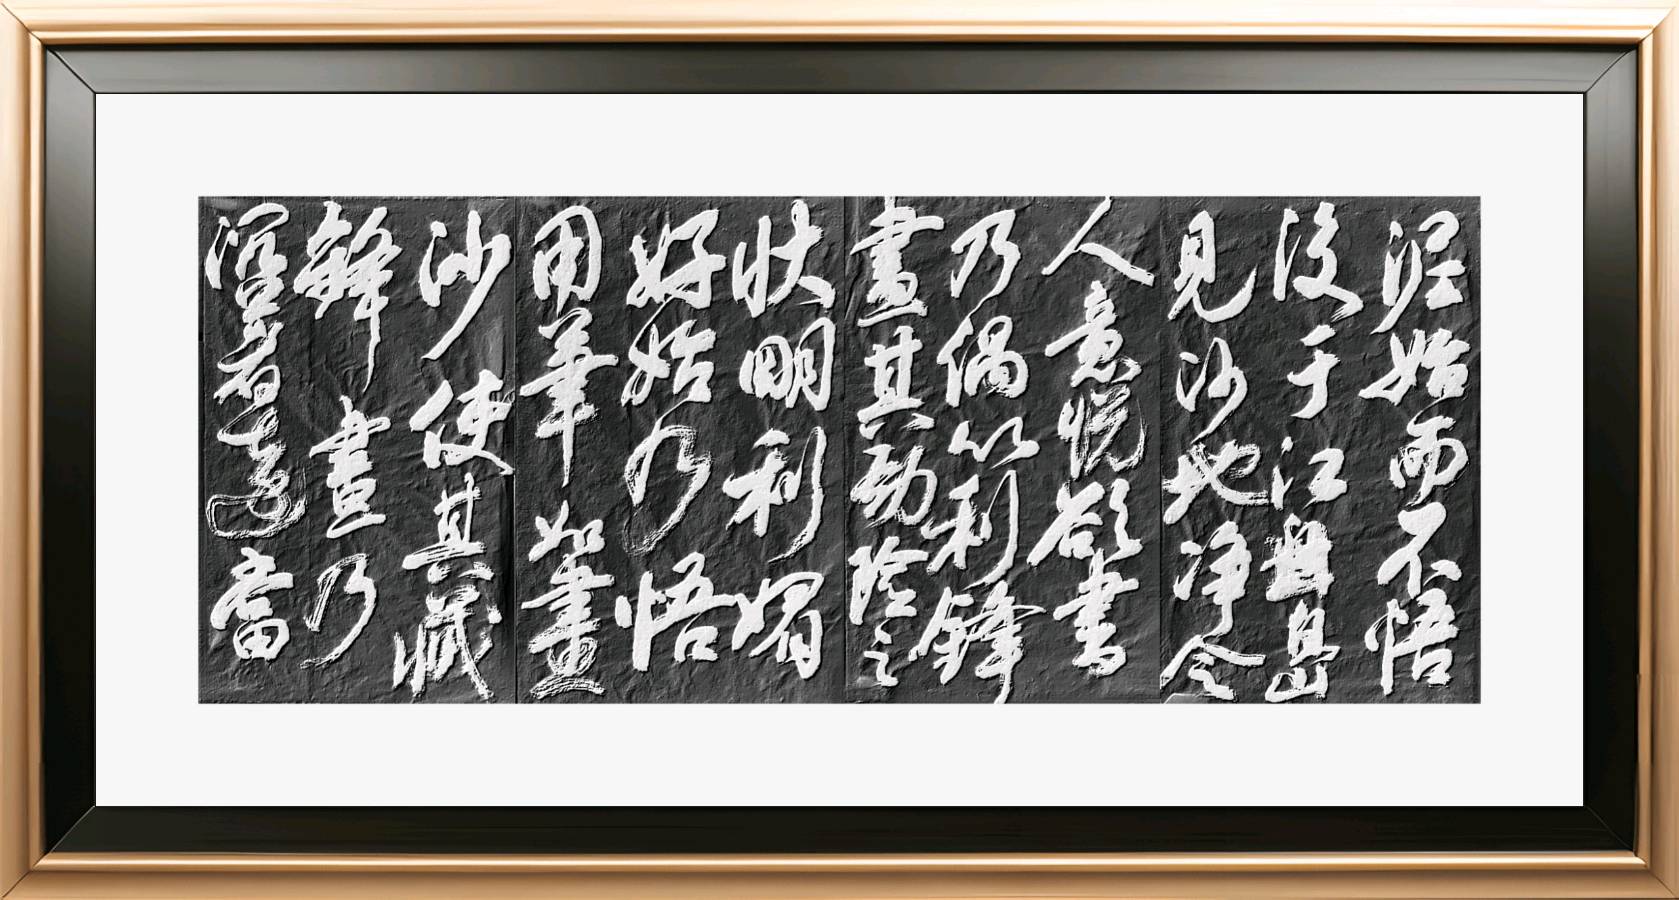 泥始而不悟
後于江島
見沙地淨令
人意悅欲書
乃偶以利鋒
畫其勁險之
狀明利媚
好始乃悟
用筆如畫
沙使其藏
鋒畫乃
沉着當